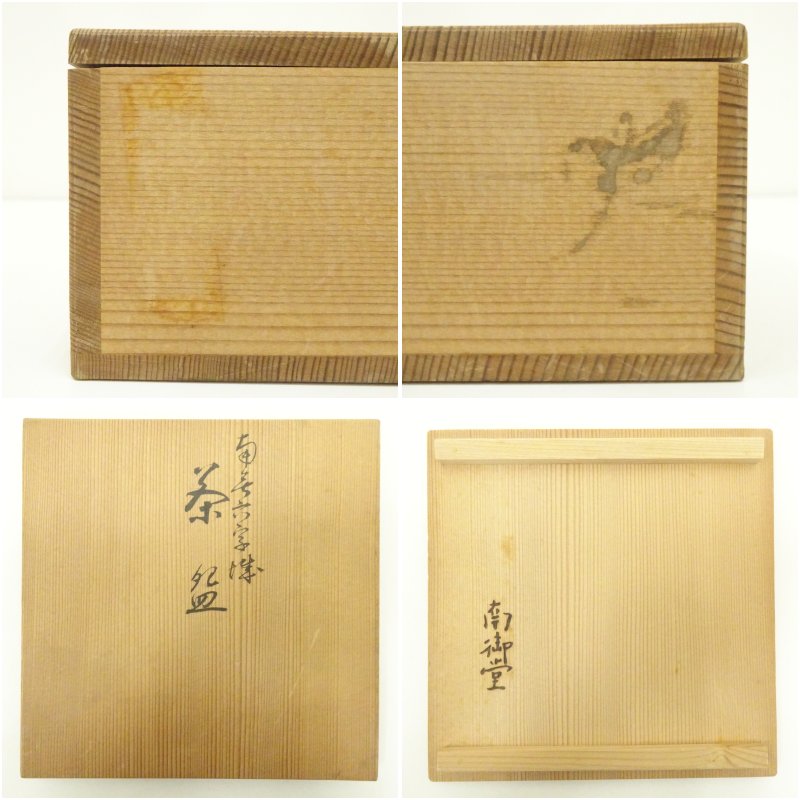 南無六字
茶盌
南御堂